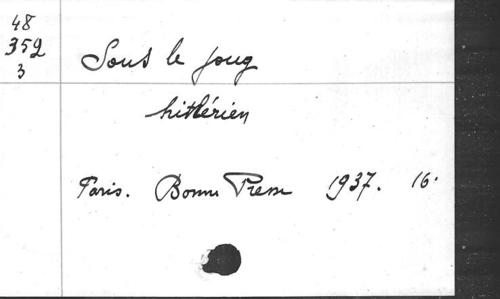 48
352
3
Sous le joug
hitlérien
Paris. Bonne Presse 1937. 16°